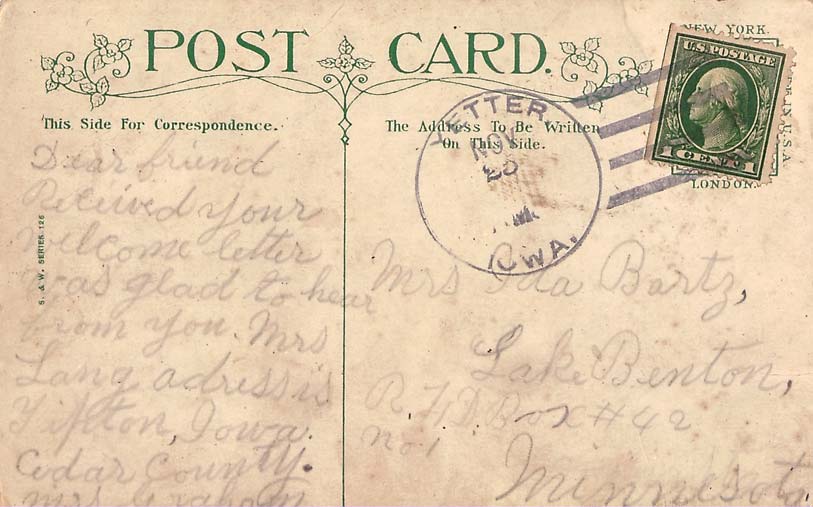 POST CARD.
NEW YORK.
U.S. POSTAGE
1 CENT 1
LONDON.
This Side For Correspondence.
The Address To Be Written
On This Side.
YETTER,
NOV
IOWA.
S. & W. SERIES 126
Dear friend
Received your
welcome letter
was glad to hear
from you. Mrs
Lang adress is
Tipton, Iowa.
Cedar County.
Mrs
Mrs Ida Bartz,
Lake Benton,
R. F. D Box # 42
no 1
Minnesota